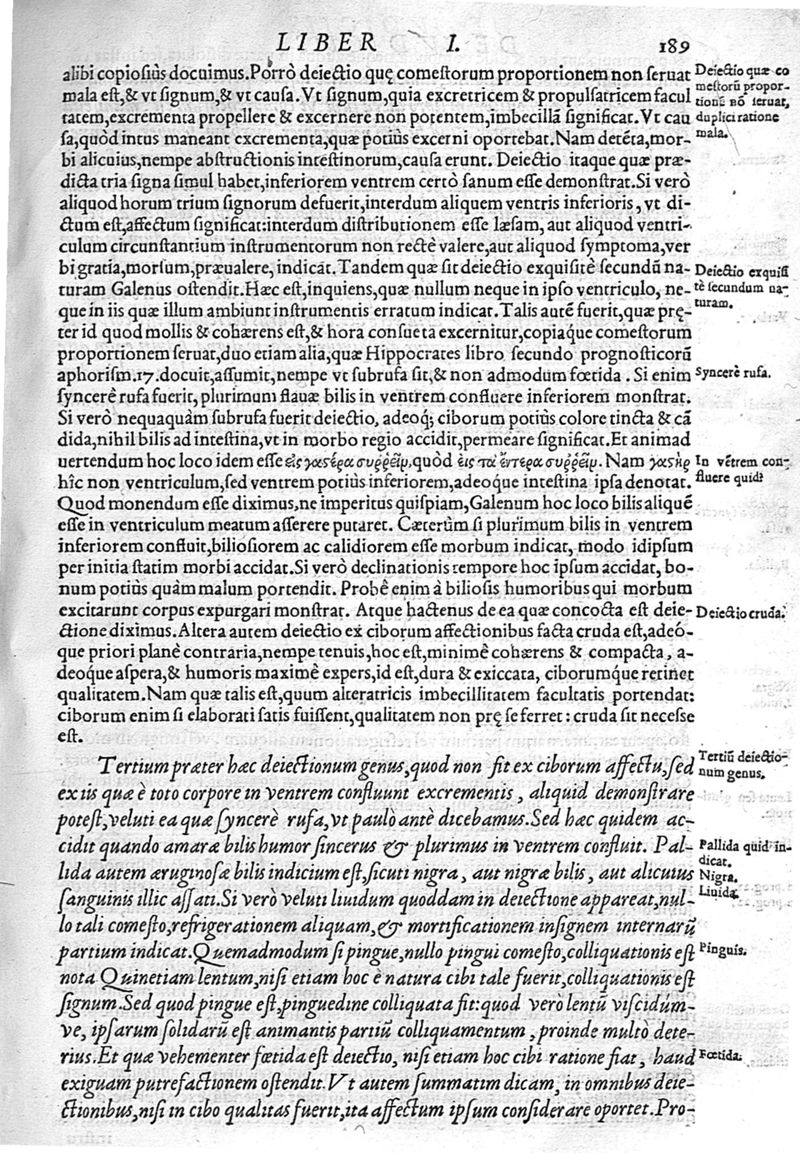 LIBER I. 189
alibi copiosiùs docuimus. Porrò deiectio quę comestorum proportionem non seruat
mala est, & vt signum, & vt causa. Vt signum, quia excretricem & propulsatricem facul
tatem, excrementa propellere & excernere non potentem, imbecillā significat. Vt cau
sa, quòd intus maneant excrementa, quæ potiùs excerni oportebat. Nam detēta, mor-
bi alicuius, nempe abstructionis intestinorum, causa erunt. Deiectio itaque quæ præ-
dicta tria signa simul habet, inferiorem ventrem certò sanum esse demonstrat. Si verò
aliquod horum trium signorum defuerit, interdum aliquem ventris inferioris, vt di-
ctum est, affectum significat: interdum distributionem esse læsam, aut aliquod ventri-
culum circunstantium instrumentorum non rectè valere, aut aliquod symptoma, ver
bi gratia, morsum, præualere, indicat. Tandem quæ sit deiectio exquisitè secundū na-
turam Galenus ostendit. Hæc est, inquiens, quæ nullum neque in ipso ventriculo, ne-
que in iis quæ illum ambiunt instrumentis erratum indicat. Talis autē fuerit, quæ prę-
ter id quod mollis & cohærens est, & hora consueta excernitur, copiaque comestorum
proportionem seruat, duo etiam alia, quæ Hippocrates libro secundo prognosticorū
aphorism. 17. docuit, assumit, nempe vt subrufa sit, & non admodum fœtida. Si enim
syncerè rufa fuerit, plurimum flauæ bilis in ventrem confluere inferiorem monstrat.
Si verò nequaquàm subrufa fuerit deiectio, adeoq; ciborum potiùs colore tincta & cā
dida, nihil bilis ad intestina, vt in morbo regio accidit, permeare significat. Et animad
uertendum hoc loco idem esse εἰς γαστέρα συῤῥεῖν, quòd εἰς τὰ ἔντερα συῤῥεῖν. Nam γαστὴρ
hîc non ventriculum, sed ventrem potiùs inferiorem, adeoque intestina ipsa denotat.
Quod monendum esse diximus, ne imperitus quispiam, Galenum hoc loco bilis aliquē
esse in ventriculum meatum asserere putaret. Cæterùm si plurimum bilis in ventrem
inferiorem confluit, biliosiorem ac calidiorem esse morbum indicat, modo idipsum
per initia statim morbi accidat. Si verò declinationis tempore hoc ipsum accidat, bo-
num potiùs quàm malum portendit. Probè enim à biliosis humoribus qui morbum
excitarunt corpus expurgari monstrat. Atque hactenus de ea quæ concocta est deie-
ctione diximus. Altera autem deiectio ex ciborum affectionibus facta cruda est, adeó-
que priori planè contraria, nempe tenuis, hoc est, minimè cohærens & compacta, a-
deoque aspera, & humoris maximè expers, id est, dura & exiccata, ciborumque retinet
qualitatem. Nam quæ talis est, quum alteratricis imbecillitatem facultatis portendat:
ciborum enim si elaborati satis fuissent, qualitatem non prę se ferret: cruda sit necesse
est.
Tertium præter hæc deiectionum genus, quod non fit ex ciborum affectu, sed
ex iis quæ è toto corpore in ventrem confluunt excrementis, aliquid demonstrare
potest, veluti ea quæ syncerè rufa, vt paulò antè dicebamus. Sed hæc quidem ac-
cidit quando amaræ bilis humor sincerus & plurimus in ventrem confluit. Pal-
lida autem æruginosæ bilis indicium est, sicuti nigra, aut nigræ bilis, aut alicuius
sanguinis illic assati. Si verò veluti liuidum quoddam in deiectione appareat, nul-
lo tali comesto, refrigerationem aliquam, & mortificationem insignem internarū
partium indicat. Quemadmodum si pingue, nullo pingui comesto, colliquationis est
nota Quinetiam lentum, nisi etiam hoc è natura cibi tale fuerit, colliquationis est
signum. Sed quod pingue est, pinguedine colliquata fit: quod verò lentū viscidúm-
ve, ipsarum solidarū est animantis partiū colliquamentum, proinde multò dete-
rius. Et quæ vehementer fœtida est deiectio, nisi etiam hoc cibi ratione fiat, haud
exiguam putrefactionem ostendit. Vt autem summatim dicam, in omnibus deie-
ctionibus, nisi in cibo qualitas fuerit, ita affectum ipsum considerare oportet. Pro-
Deiectio quæ co
mestorū propor-
tionē nō seruat,
duplici ratione
mala.
Deiectio exquisi
tè secundum na-
turam.
Syncerè rufa.
In vētrem con-
fluere quid?
Deiectio cruda.
Tertiū deiectio-
num genus.
Pallida quid in-
dicat.
Nigra.
Liuida.
Pinguis.
Fœtida.